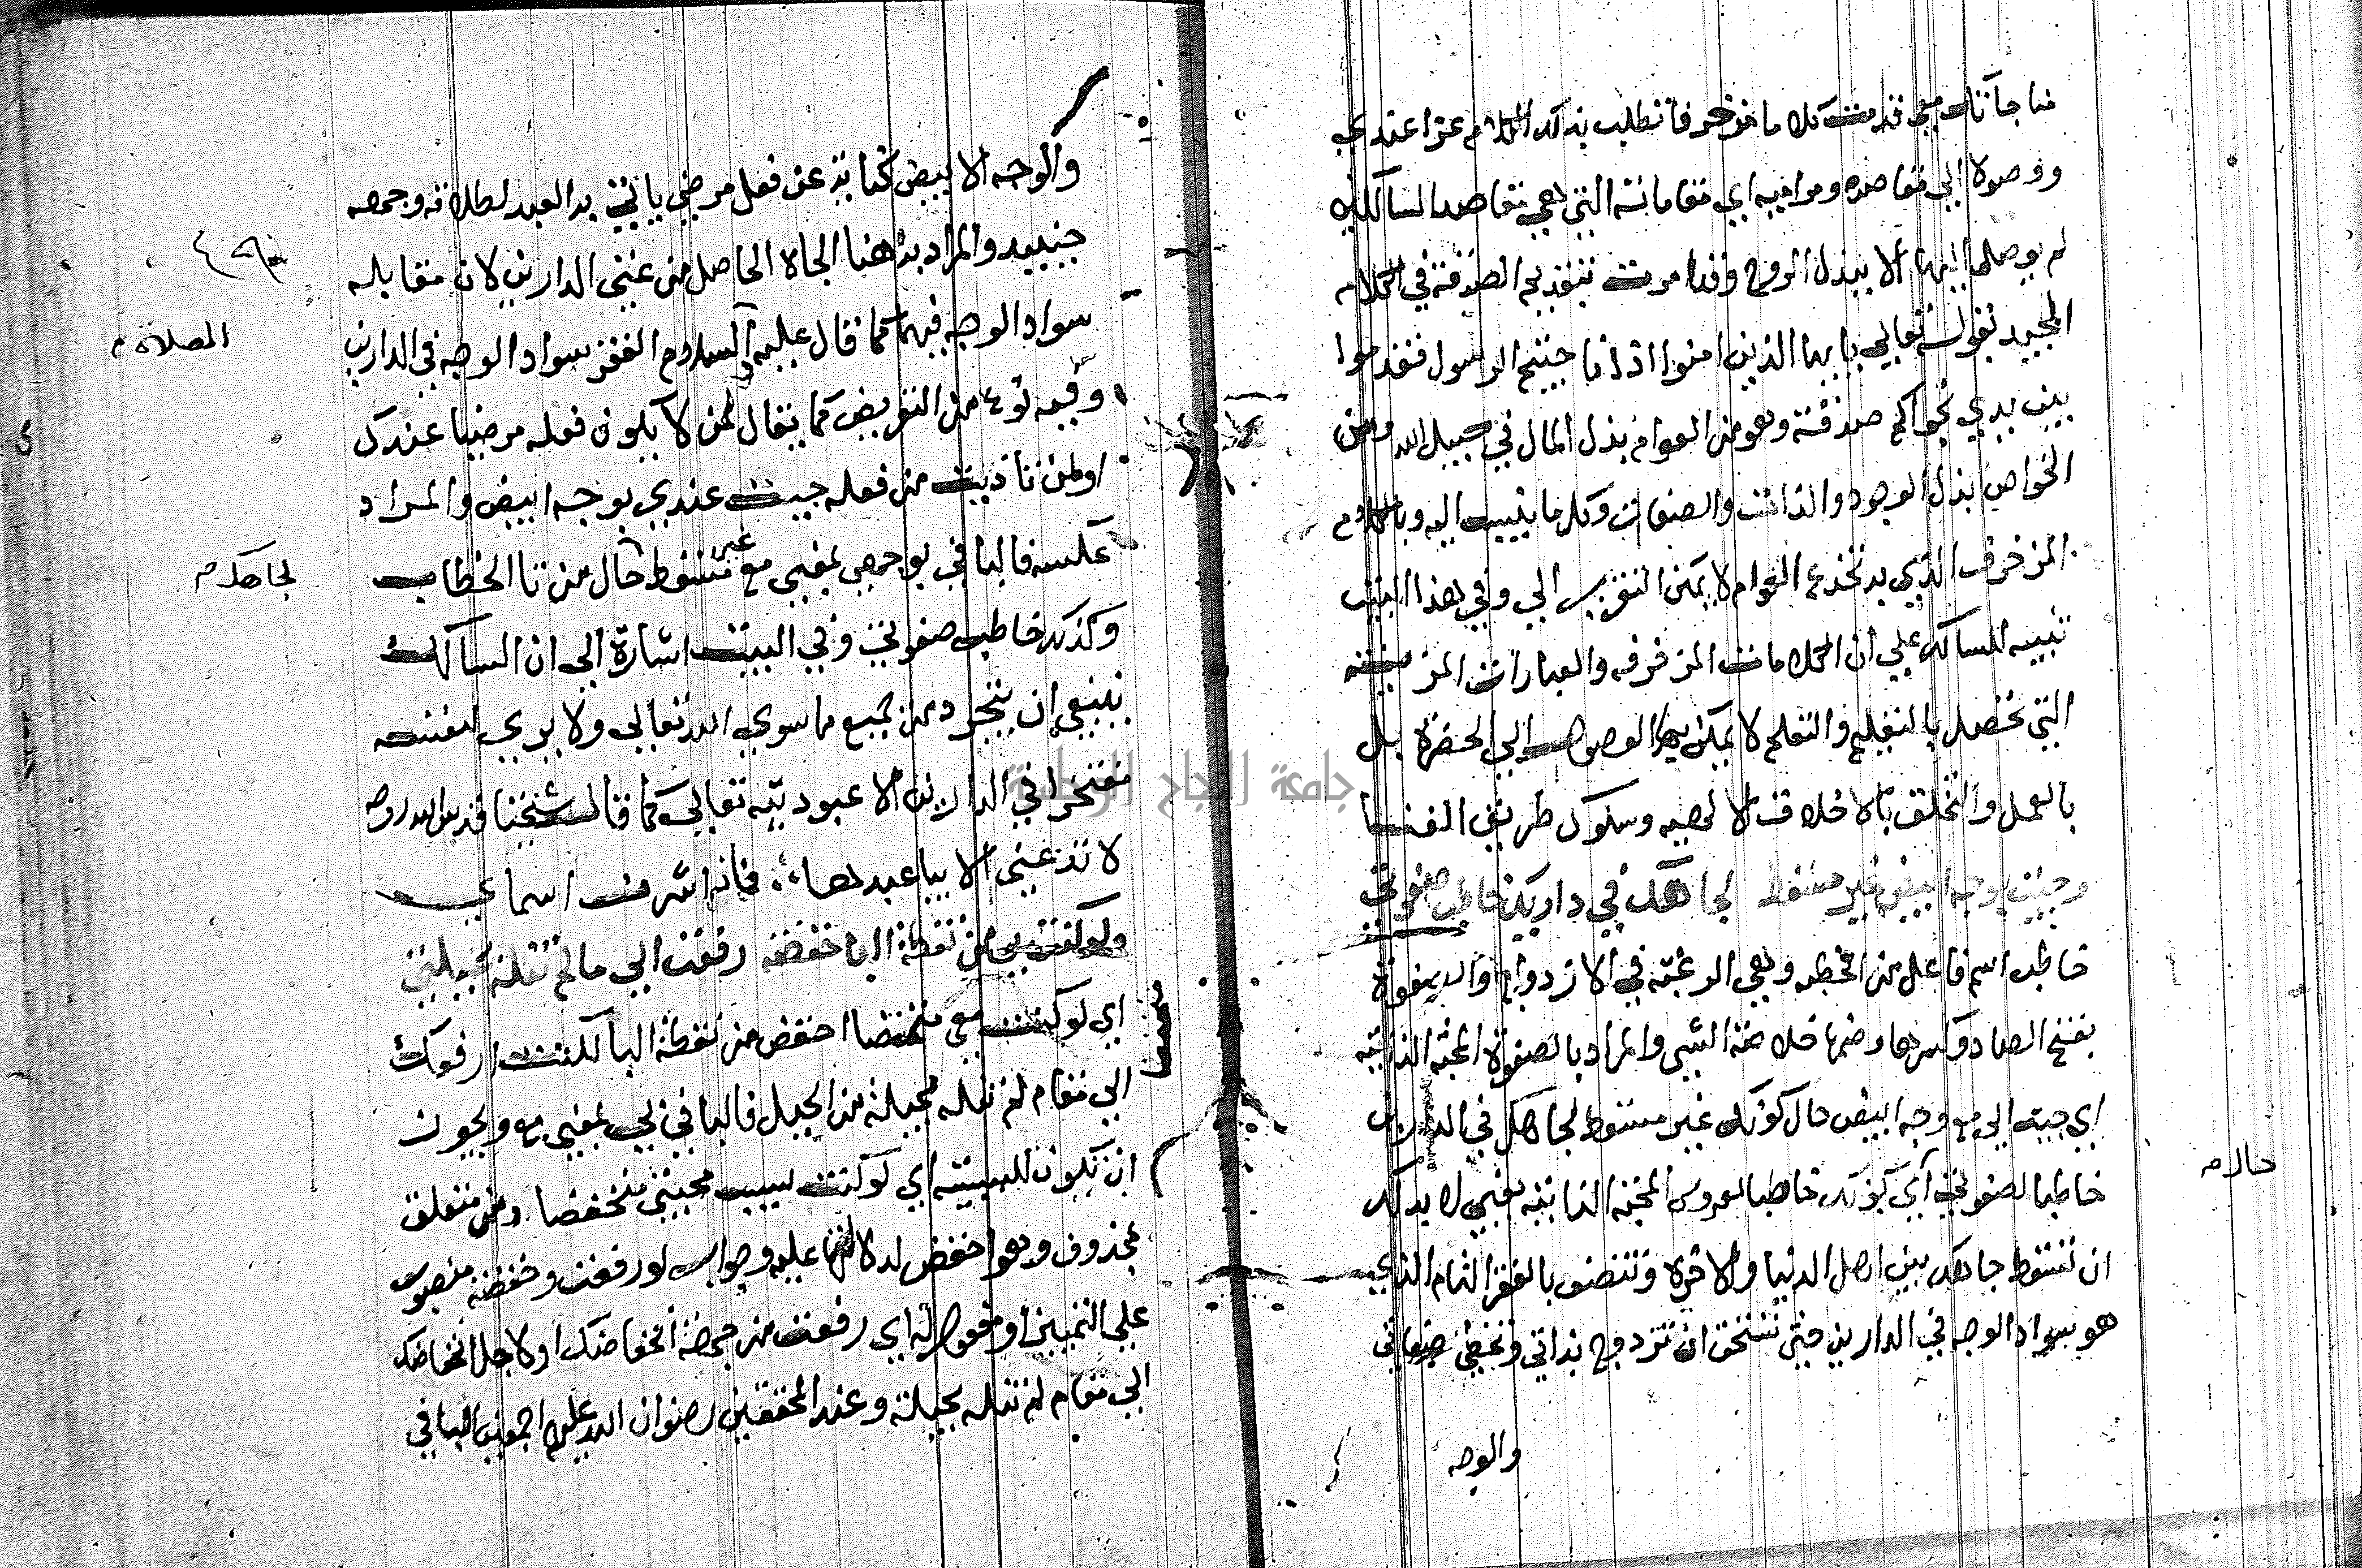 مناجاتك معي قدمت كلاما مزخرفا تطلب بذلك الكلام عزا عندي
ووصولا الي مقاصده ومراميه اي مقاماته التي هي مقاصد السالكين
لم يوصل اليها الا ببذل الروح وقد امرت بتقديم الصدقة في الكلام
المجيد بقوله تعالي يا ايها الذين امنوا اذا ناجيتم الرسول فقدموا
بين يدي نجواكم صدقة وهو من العوام بذل المال في سبيل الله ومن
الخواص بذل الوجود والذات والصفات وكل ما ينسب اليه وبالكلام
المزخرف الذي به تخدع العوام لا يمكن التقرب الي وفي هذا البيت
تنبيه للسالك علي ان الكلمات المزخرفه والعبارات المزينه
التي تحصل بالتعليم والتعلم لا يمكن بها الوصول الي الحضرة بل
بالعمل والتخلق بالاخلاق الالهيه وسلوك طريق الفنا
وجيت بوجه ابيض غير مسقط لجاهك في داريك خاطب صفوتي
خاطب اسم فاعل من الخطبه وهي الرغبة في الازدواج والصفوة
بفتح الصاد وكسرها وضمها خلاصة الشي والمراد بالصفوة المحبة الذاتيه
اي جيت الي مع وجه ابيض حال كونك غير مسقط لجاهك في الدارين
خاطبا لصفوتي اي كونك خاطبا لعروس المحبة الذاتيه يعني لا بد لك
حالا
ان تسقط جاهك بين اهل الدنيا والاخرة وتتصف بالفقر التام الذي
هو سواد الوجه في الدارين حتي تستحق ان تزدوج بذاتي وصفاتي
والوجه
والوجه الابيض كناية عن فعل مرضي ياتي به العبد لطلاقة وجهه
حينيد والمراد به هنا الجاه الحاصل من غني الدارين لان مقابله
سواد الوجه فيهما كما قال عليه السلام الفقر سواد الوجه في الدارين
الصلاة
وفيه نوع من التعريض كما يقال لمن لا يكون فعله مرضيا عندك
او لمن تاذيت من فعله جيت عندي بوجه ابيض والمراد
عكسه فالبا في بوجه بمعني مع غير مسقط حال من تا الخطاب
لجاهك
وكذلك خاطب صفوتي وفي البيت اشارة الي ان السالك
ينبغي ان يتجرد من جميع ما سوي الله تعالي ولا يري لنفسه
مفتخرا في الدارين الا عبوديته تعالي كما قال شيخنا قدس الله روحه
لا تدعني الا بيا عبدها فانه اشرف اسماي
ولو كنت بي من نقطة البا خفضة رفعت الي ما لم تنله بحيلة
اي لو كنت معي منخفضا اخفض من نقطة البا لكنت ارفعك
الي مقام لم تنله بحيلة من الحيل فالبا في بي بمعني مع ويجوز
ان تكون للسببيه اي لو كنت بسبب محبتي منخفضا ومن متعلق
بمحذوف وهو اخفض لدلالتها عليه وجواب لو رفعت وخفضة منصوب
علي التمييز او مفعول له اي رفعت من جهة انخفاضك او لاجل انخفاضك
الي مقام لم تنله بحيلة وعند المحققين رضوان الله عليهم اجمعين البا في
جامعة النجاح الوطنية